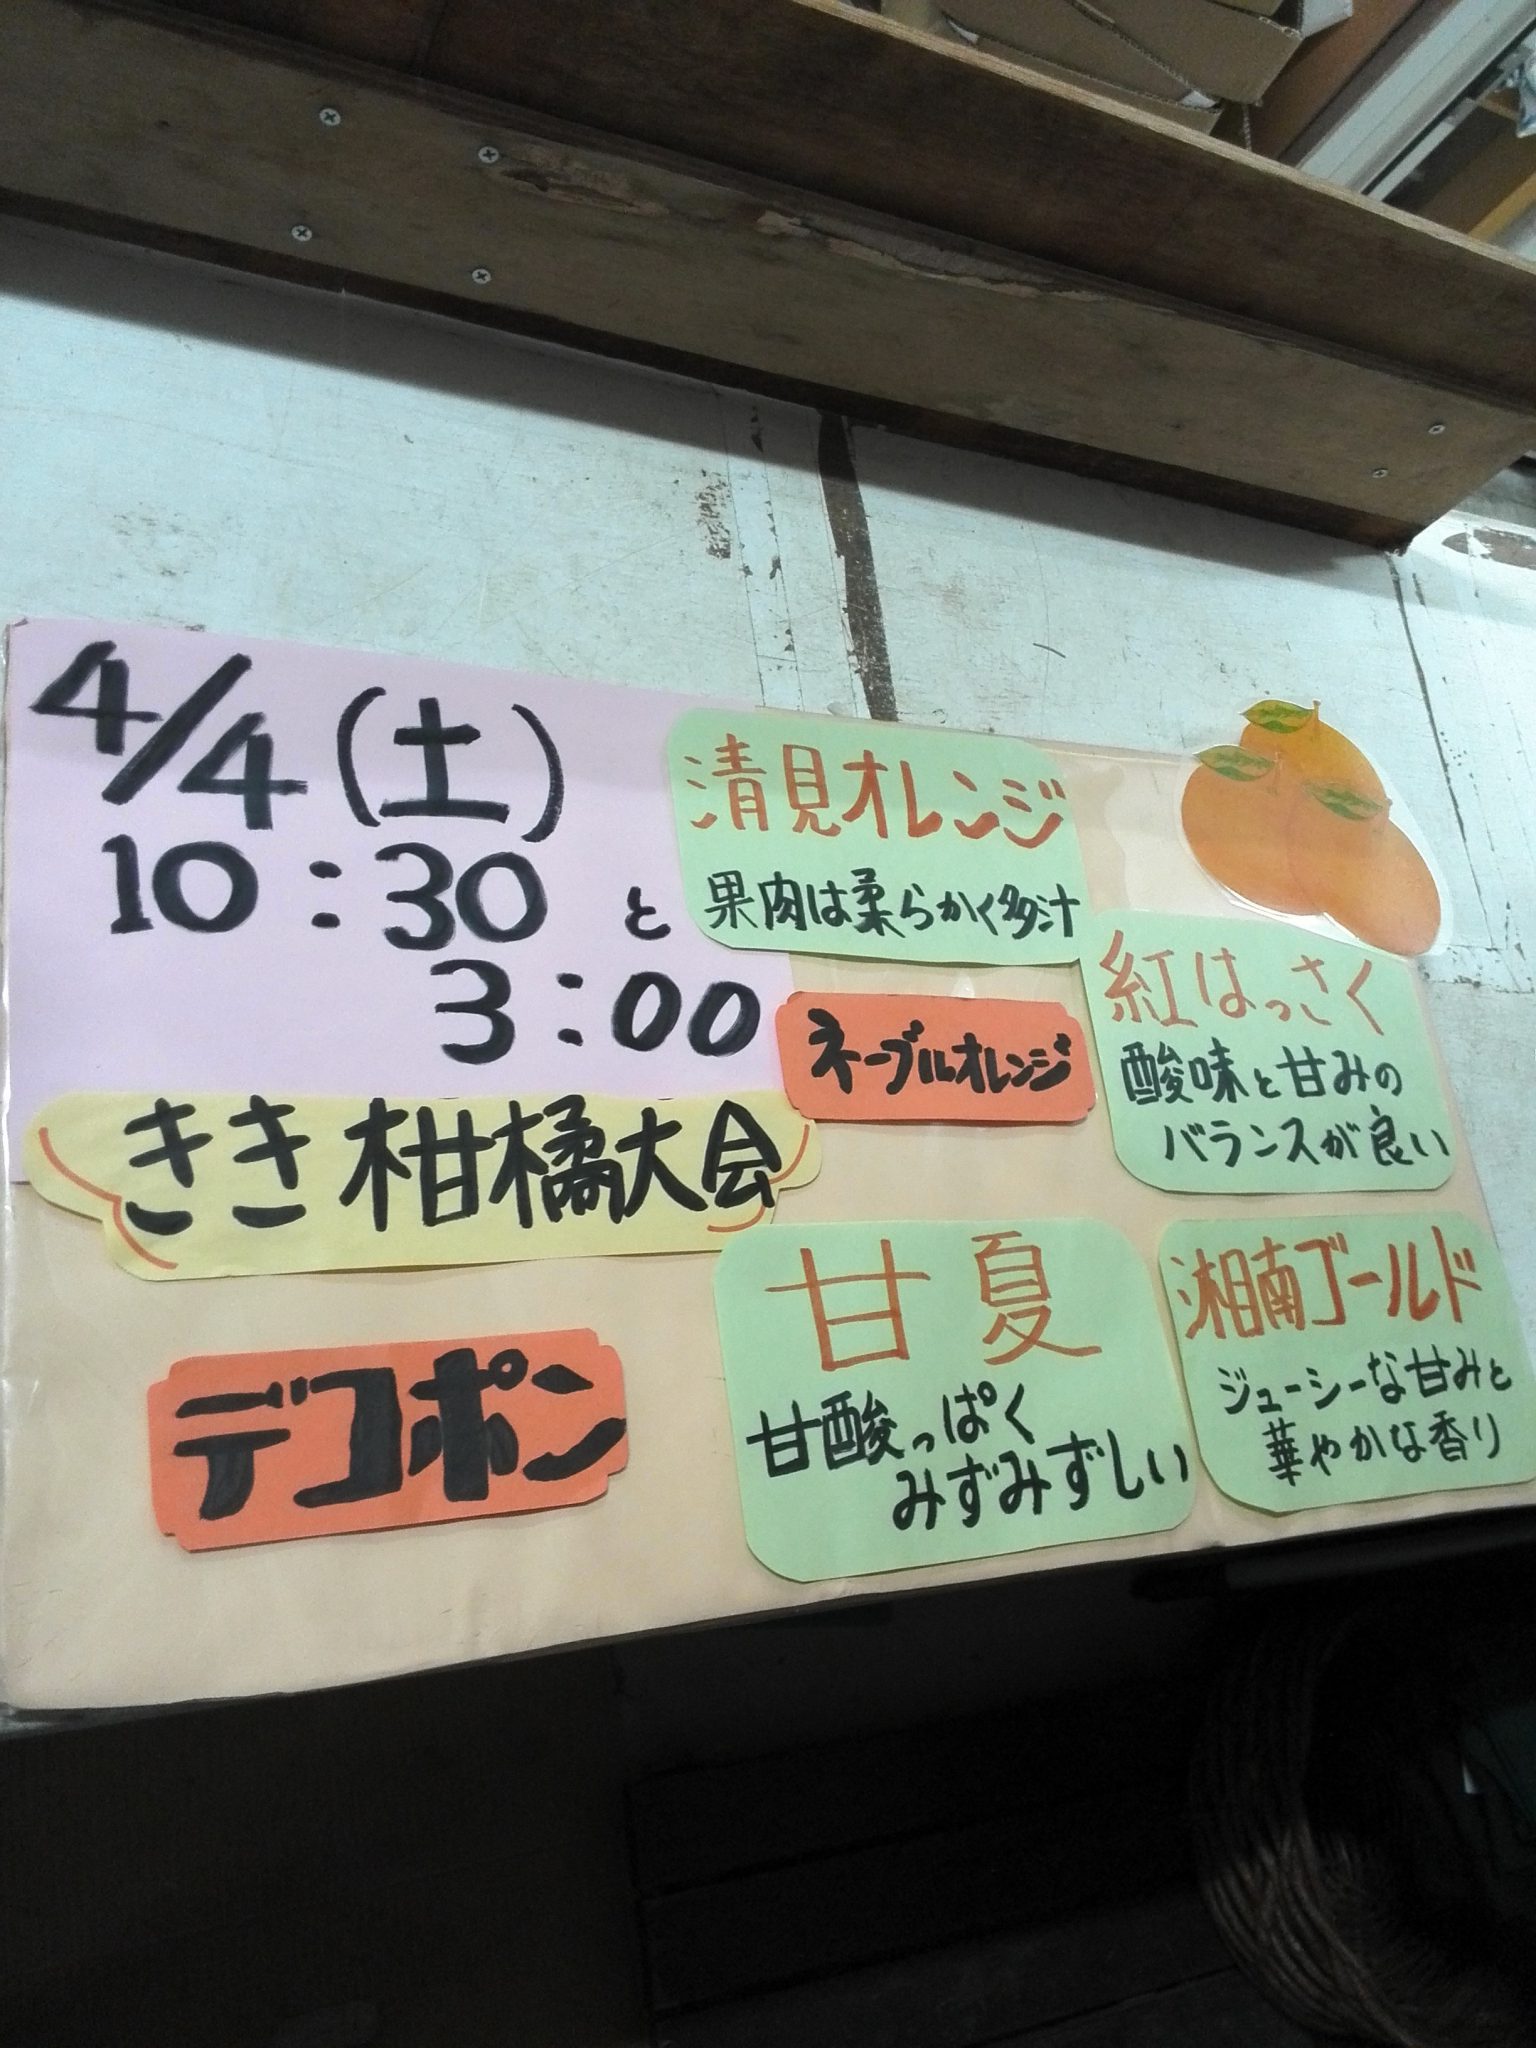 4/4(土)
10:30と
3:00
きき柑橘大会
デコポン
清見オレンジ
果肉は柔らかく多汁
ネーブルオレンジ
紅はっさく
酸味と甘みの
バランスが良い
甘夏
甘酸っぱく
みずみずしい
湘南ゴールド
ジューシーな甘みと
華やかな香り